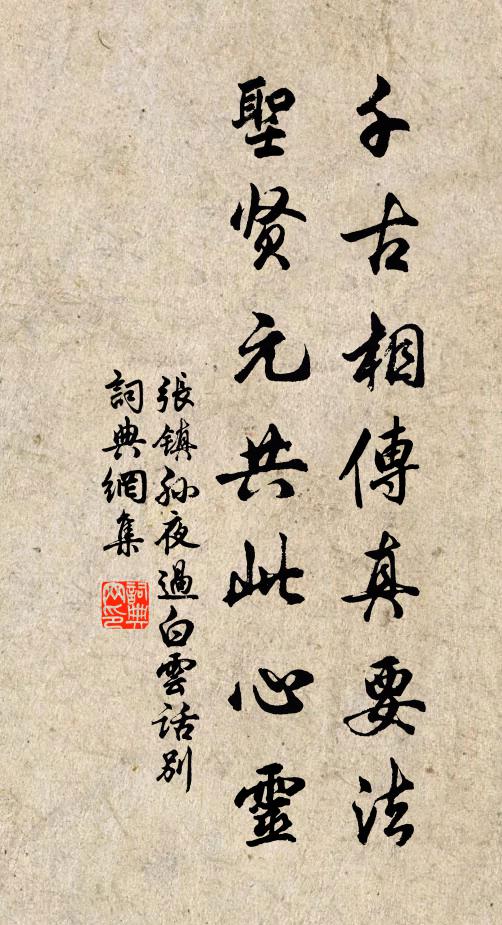 千古相傳真要法
聖贤元共此心靈
張鎮孙夜過白雲話别
詞典網集
詞典網印